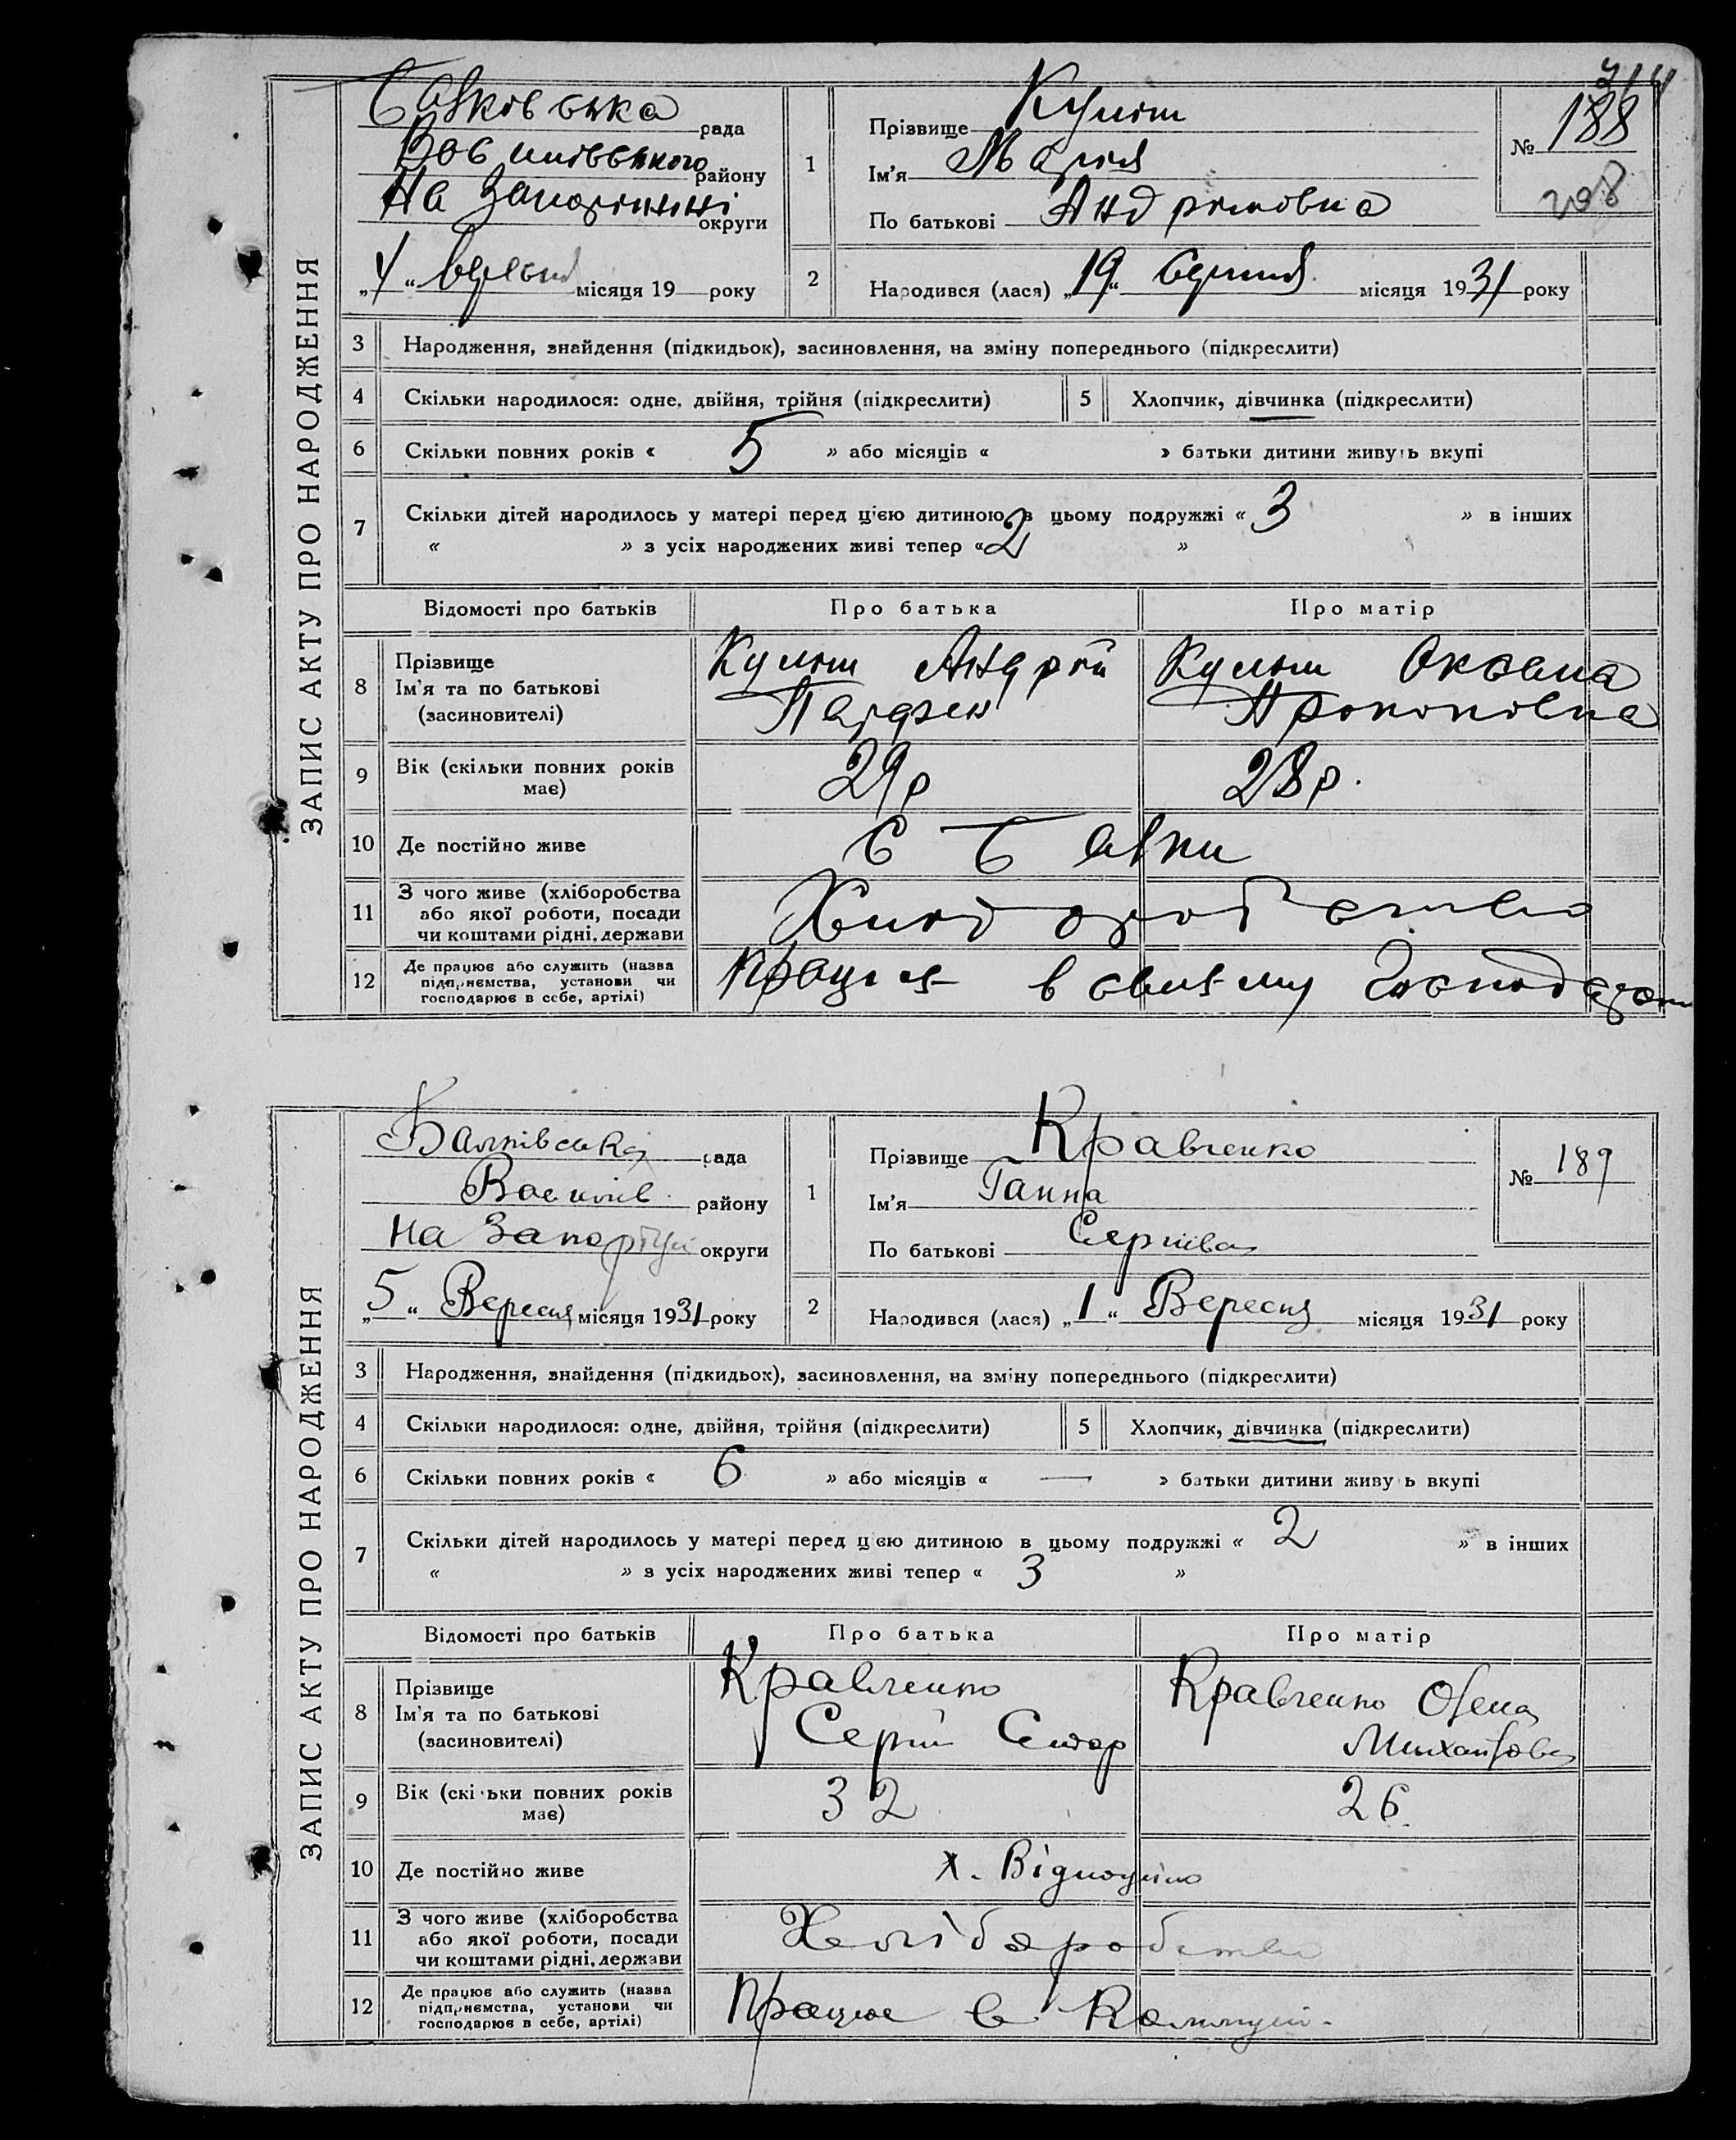 ЗАПИС АКТУ ПРО НАРОДЖЕННЯ
рада
району
На округи
„4“ місяця 19 року
1
Прізвище Куліш
Ім'я Марія
По батькові
№ 188
208
2
Народився (лася) „19“ Серпня місяця 1931 року
3 Народження, знайдення (підкидьок), засиновлення, на зміну попереднього (підкреслити)
4 Скільки народилося: одне, двійня, трійня (підкреслити)
5 Хлопчик, дівчинка (підкреслити)
6 Скільки повних років « 5 » або місяців « » батьки дитини живуть вкупі
7 Скільки дітей народилось у матері перед цією дитиною в цьому подружжі « 3 » в інших
« » з усіх народжених живі тепер « 2 »
Відомості про батьків Про батька Про матір
8 Прізвище
Ім'я та по батькові
(засиновителі)
Куліш Андрій
Парфен
Куліш Оксана
Прокоповна
9 Вік (скільки повних років
має)
29р 28р.
10 Де постійно живе С Балки
11 З чого живе (хліборобства
або якої роботи, посади
чи коштами рідні, держави
Хліборобство
12 Де працює або служить (назва
підприємства, установи чи
господарює в себе, артілі)
в
ЗАПИС АКТУ ПРО НАРОДЖЕННЯ
Балківська рада
Василів. району
На округи
„5“ Вересня місяця 1931 року
1
Прізвище Кравченко
Ім'я Ганна
По батькові Сергіївна
№ 189
2
Народився (лася) „1“ Вересня місяця 1931 року
3 Народження, знайдення (підкидьок), засиновлення, на зміну попереднього (підкреслити)
4 Скільки народилося: одне, двійня, трійня (підкреслити)
5 Хлопчик, дівчинка (підкреслити)
6 Скільки повних років « 6 » або місяців « — » батьки дитини живуть вкупі
7 Скільки дітей народилось у матері перед цією дитиною в цьому подружжі « 2 » в інших
« » з усіх народжених живі тепер « 3 »
Відомості про батьків Про батька Про матір
8 Прізвище
Ім'я та по батькові
(засиновителі)
Кравченко
Сергій Сидор
Кравченко Олена
Михайлова
9 Вік (скільки повних років
має)
32 26
10 Де постійно живе х.
11 З чого живе (хліборобства
або якої роботи, посади
чи коштами рідні, держави
Хліборобство
12 Де працює або служить (назва
підприємства, установи чи
господарює в себе, артілі)
Працює в Комуні.